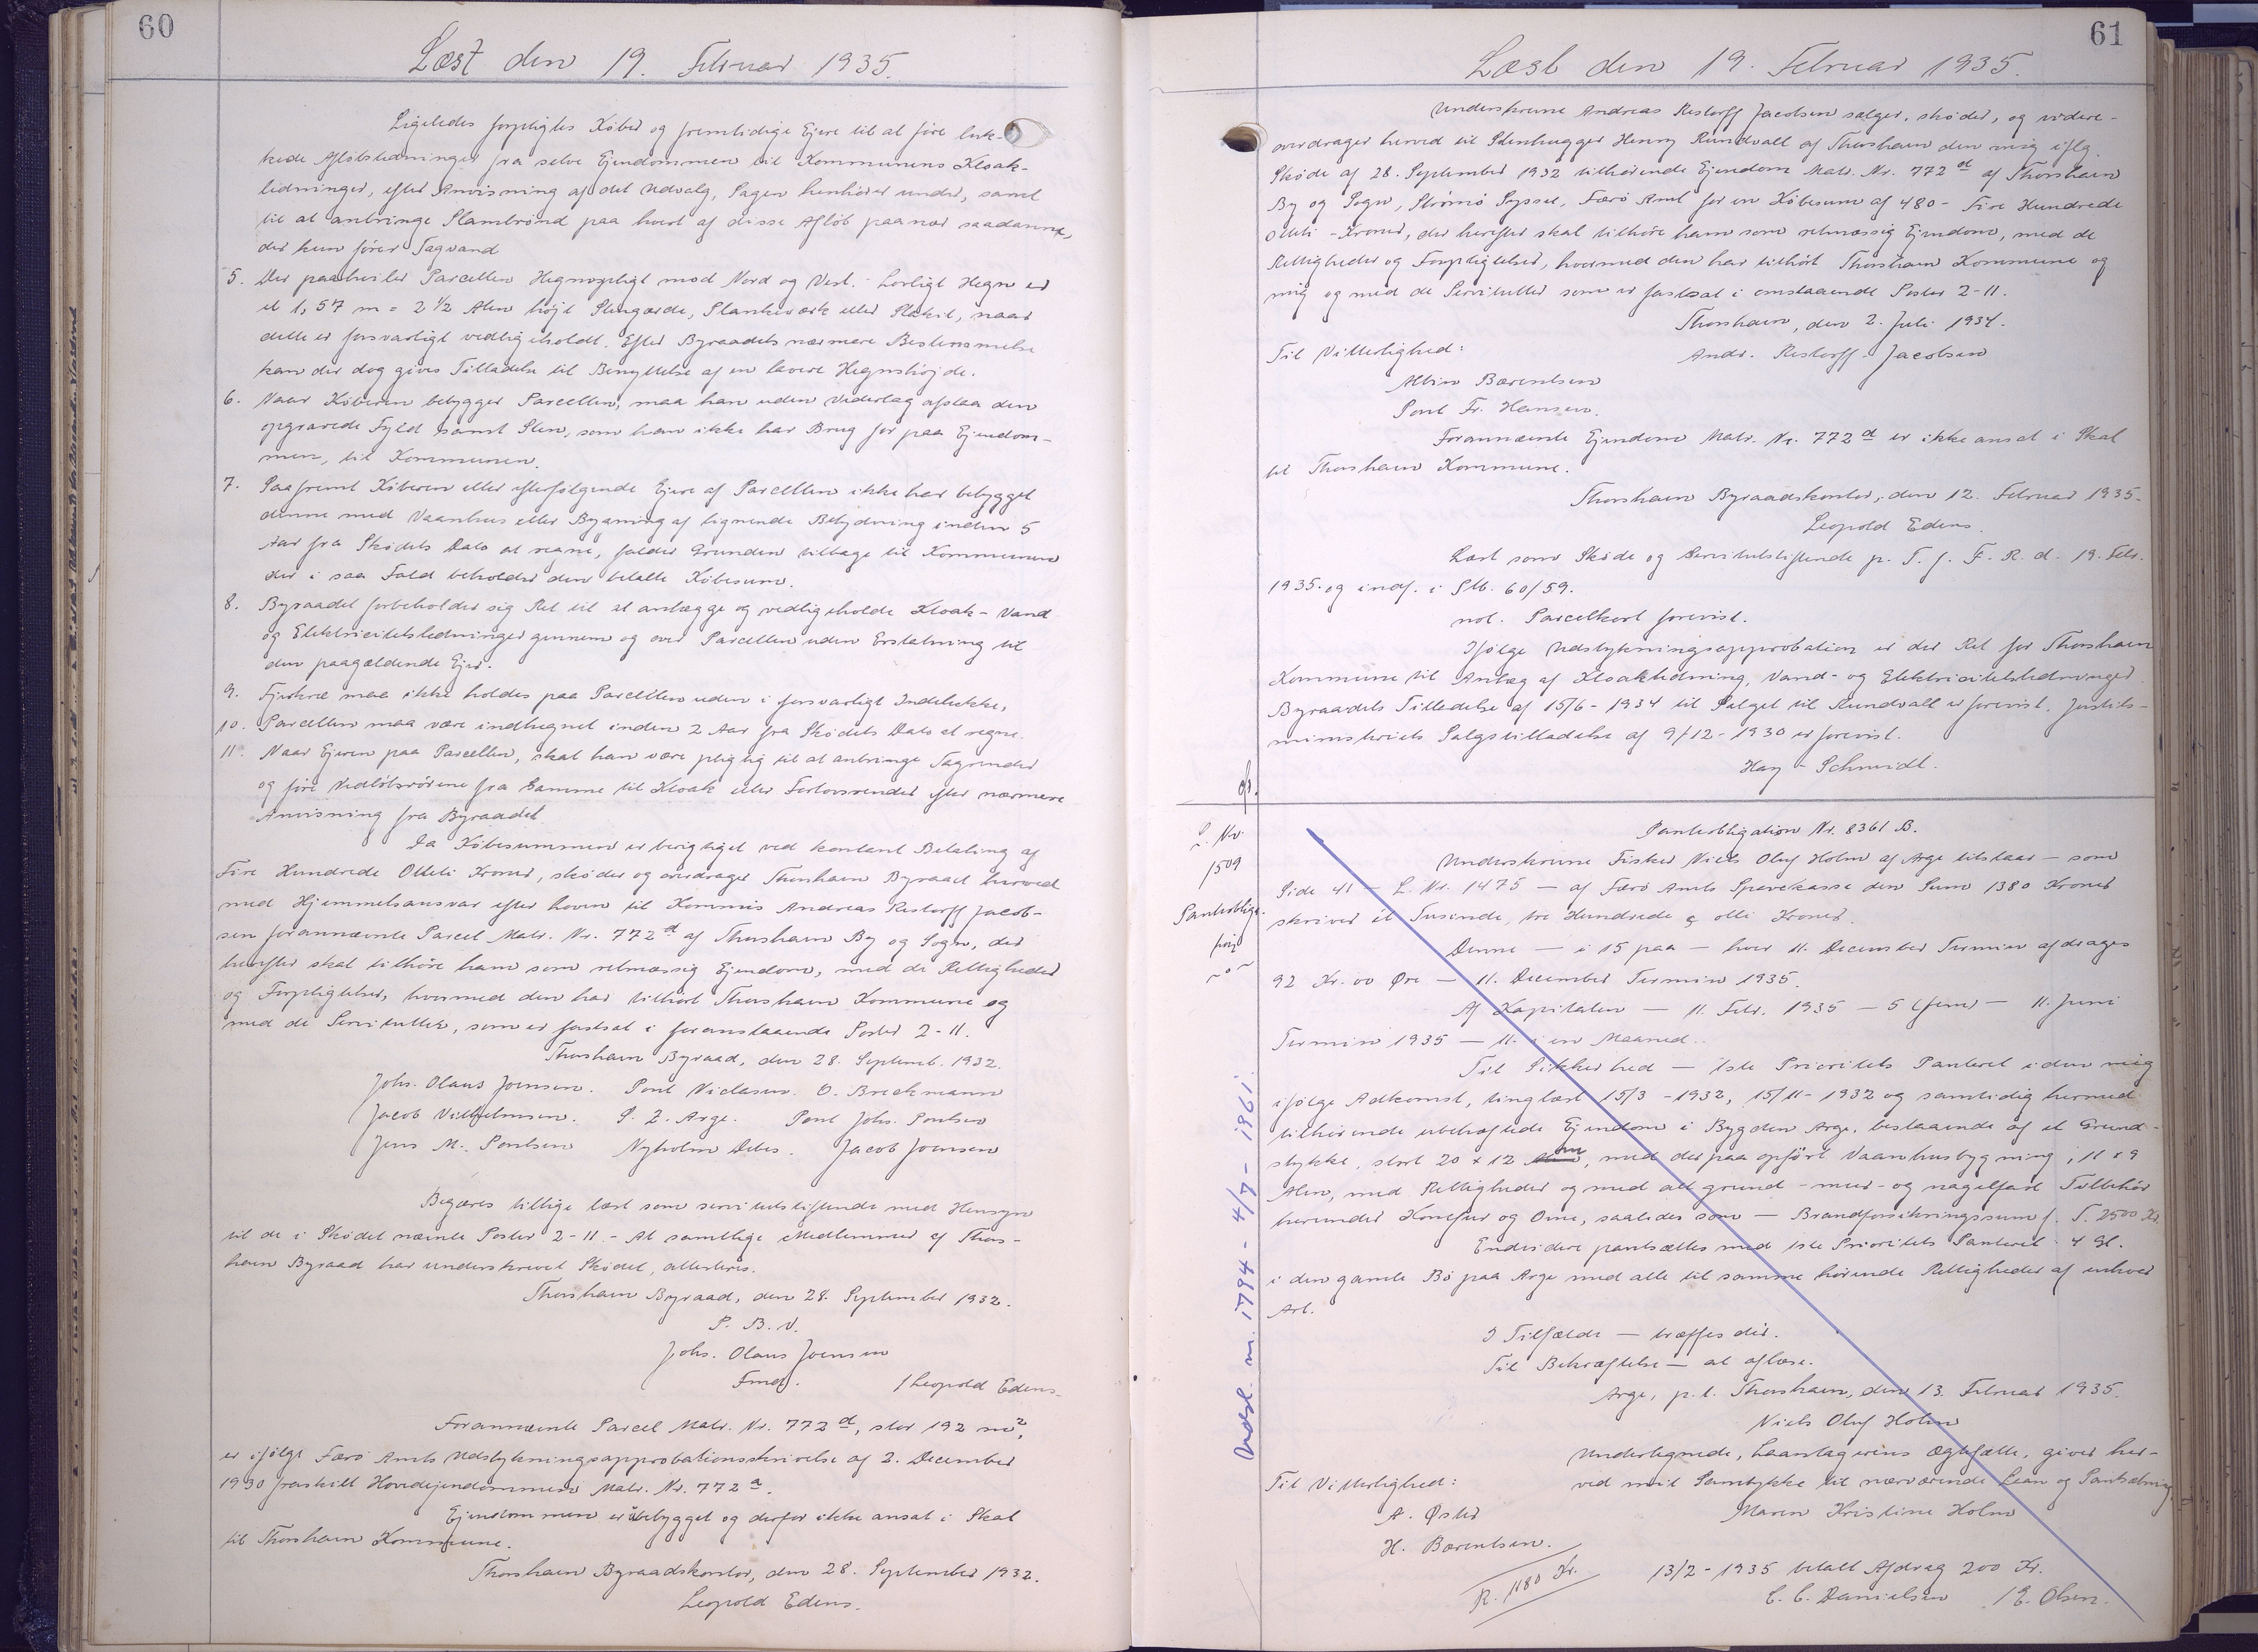 60
Læst den 19. Februar 1935.
Ligeledes forpligtes Køber og fremtidige Ejere til at føre luk-
kede Afløbsledninger fra selve Ejendommen til Kommunens Kloak-
ledninger, efter Anvisning af det Udvalg, Sagen henhører under, samt
til at anbringe Slambrønd paa hvert af disse Afløb paanær saadanne,
der kun fører Tagvand
5. Der paahviler Parcellen Hegnspligt mod Nord og Vest. - Lovligt Hegn er
et 1,57 m = 2 1/2 Alen højt Stengærde, Plankeværk eller Stakit, naar
dette er forsvarligt vedligeholdt. Efter Byraadets nærmere Bestemmelse
kan der dog gives Tilladelse til Benyttelse af en lavere Hegnshøjde.
6. Naar Køberen bebygger Parcellen, maa han uden Vederlag afstaa den
opgravede Fyld samt Sten, som han ikke har Brug for paa Ejendom-
men, til Kommunen.
7. Paafremt Køberen eller efterfølgende Ejere af Parcellen ikke har bebygget
denne med Vaanhus eller Bygning af lignende Betydning inden 5
Aar fra Skødets Dato at regne, falder Grunden tilbage til Kommunen
der i saa Fald beholder den betalte Købesum.
8. Byraadet forbeholder sig Ret til at anlægge og vedligeholde Kloak- Vand
og Elektricitetsledninger gennem og over Parcellen uden Erstatning til
den paagældende Ejer.
9. Fjerkræ maa ikke holdes paa Parcellen uden i forsvarligt Indelukke,
10. Parcellen maa være indhegnet inden 2 Aar fra Skødets Dato at regne.
11. Naar Ejeren paa Parcellen, skal han være pligtig til at anbringe Tagrender
og føre Nedløbsrørene fra Samme til Kloak eller Fortovsrender efter nærmere
Anvisning fra Byraadet
Da Købesummen er berigtiget ved kontant Betaling af
Fire Hundrede Otteti Kroner, skøder og overdrager Thorshavn Byraad herved
med Hjemmelsansvar efter Loven til Kommis Andreas Restorff Jacob-
sen forannævnte Parcel Matr. Nr. 772 d af Thorshavn By og Sogn, der
herefter skal tilhøre ham som retmæssig Ejendom, med de Rettigheder
og Forpligtelser, hvormed den har tilhørt Thorshavn Kommune og
med de Servitutter, som er fastsat i foranstaaende Poster 2-11.
Thorshavn Byraad, den 28. Septemb. 1932.
Johs. Olaus Joensen. Poul Niclasen. O. Brekmann
Jacob Vilhelmsen. P. Z. Arge. Poul Johs. Poulsen
Jens M. Poulsen Nyholm Debes. Jacob Joensen
Begæres tillige læst som servitutstiftende med Hensyn
til de i Skødet nævnte Poster 2-11. - At samtlige Medlemmer af Thors-
havn Byraad har underskrevet Skødet, attesteres.
Thorshavn Byraad, den 28. September 1932.
P. B. V.
Johs. Olaus Joensen
Fmd. / Leopold Edens
Forannævnte Parcel Matr. Nr. 772 d, stor 192 m²,
er ifølge Færø Amts Udstykningsapprobationsskrivelse af 2. December
1930 fraskilt Hovedejendommen Matr. Nr. 772 a.
Ejendommen er ubebygget og derfor ikke ansat i Skat
til Thorshavn Kommune.
Thorshavn Byraadskontor, den 28. September 1932.
Leopold Edens.
61
Læst den 19. Februar 1935.
Underskrevne Andreas Restorff Jacobsen sælger, skøder, og videre-
overdrager herved til Stenhugger Henry Rundvall af Thorshavn den mig iflg.
Skøde af 28. September 1932 tilhørende Ejendom Matr. Nr. 772 d af Thorshavn
By og Sogn, Strømø Syssel, Færø Amt for en Købesum af 480 - Fire Hundrede
Otteti - Kroner, der herefter skal tilhøre ham som retmæssig Ejendom, med de
Rettigheder og Forpligtelser, hvormed den har tilhørt Thorshavn Kommune og
mig og med de Servitutter som er fastsat i omstaaende Poster 2-11.
Thorshavn, den 2. Juli 1934.
Til Vitterlighed: Andr. Restorff Jacobsen
Albin Bærentsen
Poul Fr. Hansen.
Forannævnte Ejendom Matr. Nr. 772 d er ikke ansat i Skat
til Thorshavn Kommune.
Thorshavn Byraadskontor, den 12. Februar 1935.
Leopold Edens.
Læst som Skøde og Servitutstiftende p. T. f. F. R. d. 19. Febr.
1935. og indf. i Stb. 60/59.
not. Parcelkort forevist.
Ifølge Udstykningsapprobation er der Ret for Thorshavn
Kommune til Anlæg af Kloakledning, Vand- og Elektricitetsledninger
Byraadets Tilladelse af 15/6 - 1934 til Salget til Rundvall er forevist. Justits-
ministeriets Salgstilladelse af 9/12 - 1930 er forevist.
Hay - Schmidt.
L. Nr.
1509
Pantoblig.
Pantobligation Nr. 8361 B.
Underskrevne Fisker Niels Oluf Holm af Arge tilstaar - som
Side 41 - L. Nr. 1475 - af Færø Amts Sparekasse den Sum 1380 Kroner
skriver et Tusinde, tre Hundrede & otti Kroner.
Denne - i 15 paa - hver 11. December Termin afdrages
92 Kr. 00 Øre - 11. December Termin 1935.
Af Kapitalen - 11. Febr. 1935 - 5 (fem) - 11. Juni
Termin 1935 - 11. i en Maaned.
Til Sikkerhed - 1ste Prioritets Panteret i den mig
ifølge Adkomst, tinglæst 15/3 - 1932, 15/11 - 1932 og samtidig hermed
tilhørende ubehæftede Ejendom i Bygden Arge, bestaaende af et Grund-
stykke, stort 20 x 12 m, med derpaa opført Vaanhusbygning, 11 x 9
Alen, med Rettigheder og med alt grund - mur - og nagelfast Tilbehør
herunder Komfur og Ovne, saaledes som - Brandforsikringssum f. T. 2500 Kr.
Endvidere pantsættes med 1ste Prioritets Panteret 4 Gl.
i den gamle Bø paa Arge med alle til samme hørende Rettigheder af enhver
Art.
I Tilfælde - træffes der.
Til Bekræftelse - at aflæse.
Arge, p. t. Thorshavn, den 13. Februar 1935.
Niels Oluf Holm
Undertegnede, Laantagerens Ægtefælle, giver her-
Til Vitterlighed: ved mit Samtykke til nærværende Laan og Pantsætning.
A. Øster Maren Kristine Holm
H. Bærentsen.
R. 1180 Kr. 13/2 - 1935 betalt Afdrag 200 Kr.
C. C. Danielsen / E. Olsen.
Udsl. m. 1794 - 4/7 - 1961.